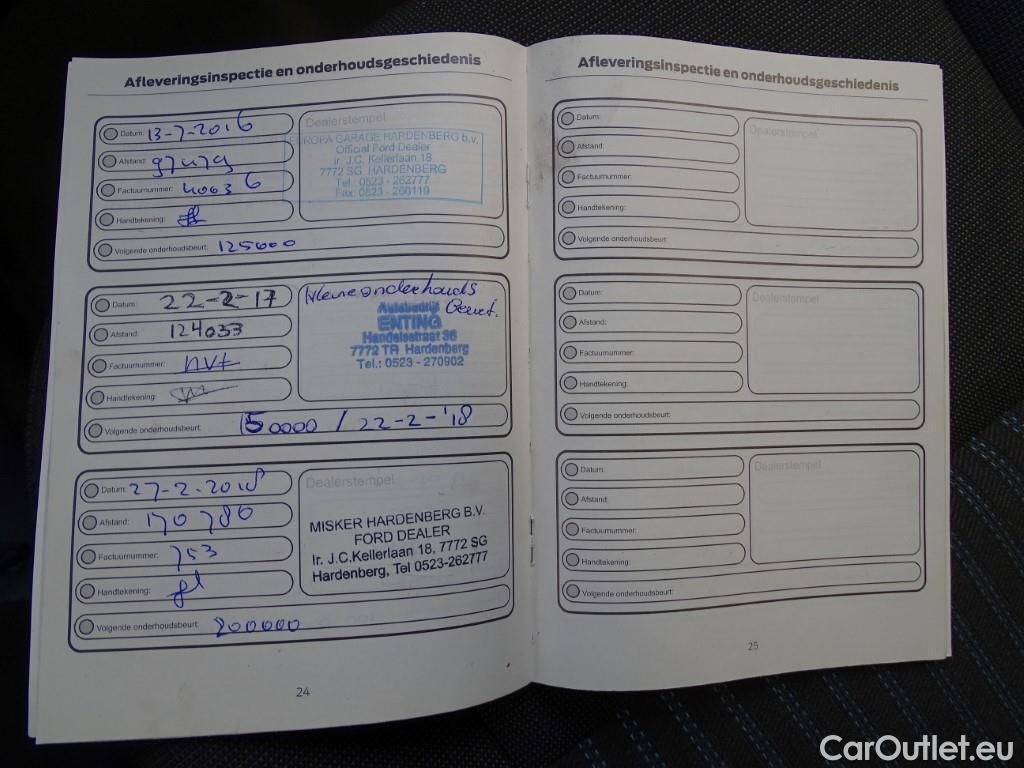 Afleveringsinspectie en onderhoudsgeschiedenis
Datum: 13-7-2016
Afstand:
Factuurnummer: 40036
Handtekening:
Volgende onderhoudsbeurt: 125000
Dealerstempel
EUROPA GARAGE HARDENBERG b.v.
Official Ford Dealer
ir. J.C. Kellerlaan 18
7772 SG HARDENBERG
Tel.: 0523 - 262777
Fax: 0523 - 266119
Datum: 22-2-17
Afstand: 124033
Factuurnummer: nvt
Handtekening:
Volgende onderhoudsbeurt: 150000 / 22-2-'18
Kleine onderhouds
Beurt.
Autobedrijf
ENTING
Handelsstraat 36
7772 TR Hardenberg
Tel.: 0523 - 270902
Datum: 27-2-2018
Afstand: 170786
Factuurnummer: 753
Handtekening:
Volgende onderhoudsbeurt: 200000
Dealerstempel
MISKER HARDENBERG B.V.
FORD DEALER
Ir. J.C.Kellerlaan 18, 7772 SG
Hardenberg, Tel 0523-262777
24
Afleveringsinspectie en onderhoudsgeschiedenis
Datum:
Afstand:
Factuurnummer:
Handtekening:
Volgende onderhoudsbeurt:
Dealerstempel
Datum:
Afstand:
Factuurnummer:
Handtekening:
Volgende onderhoudsbeurt:
Dealerstempel
Datum:
Afstand:
Factuurnummer:
Handtekening:
Volgende onderhoudsbeurt:
Dealerstempel
25
CarOutlet.eu